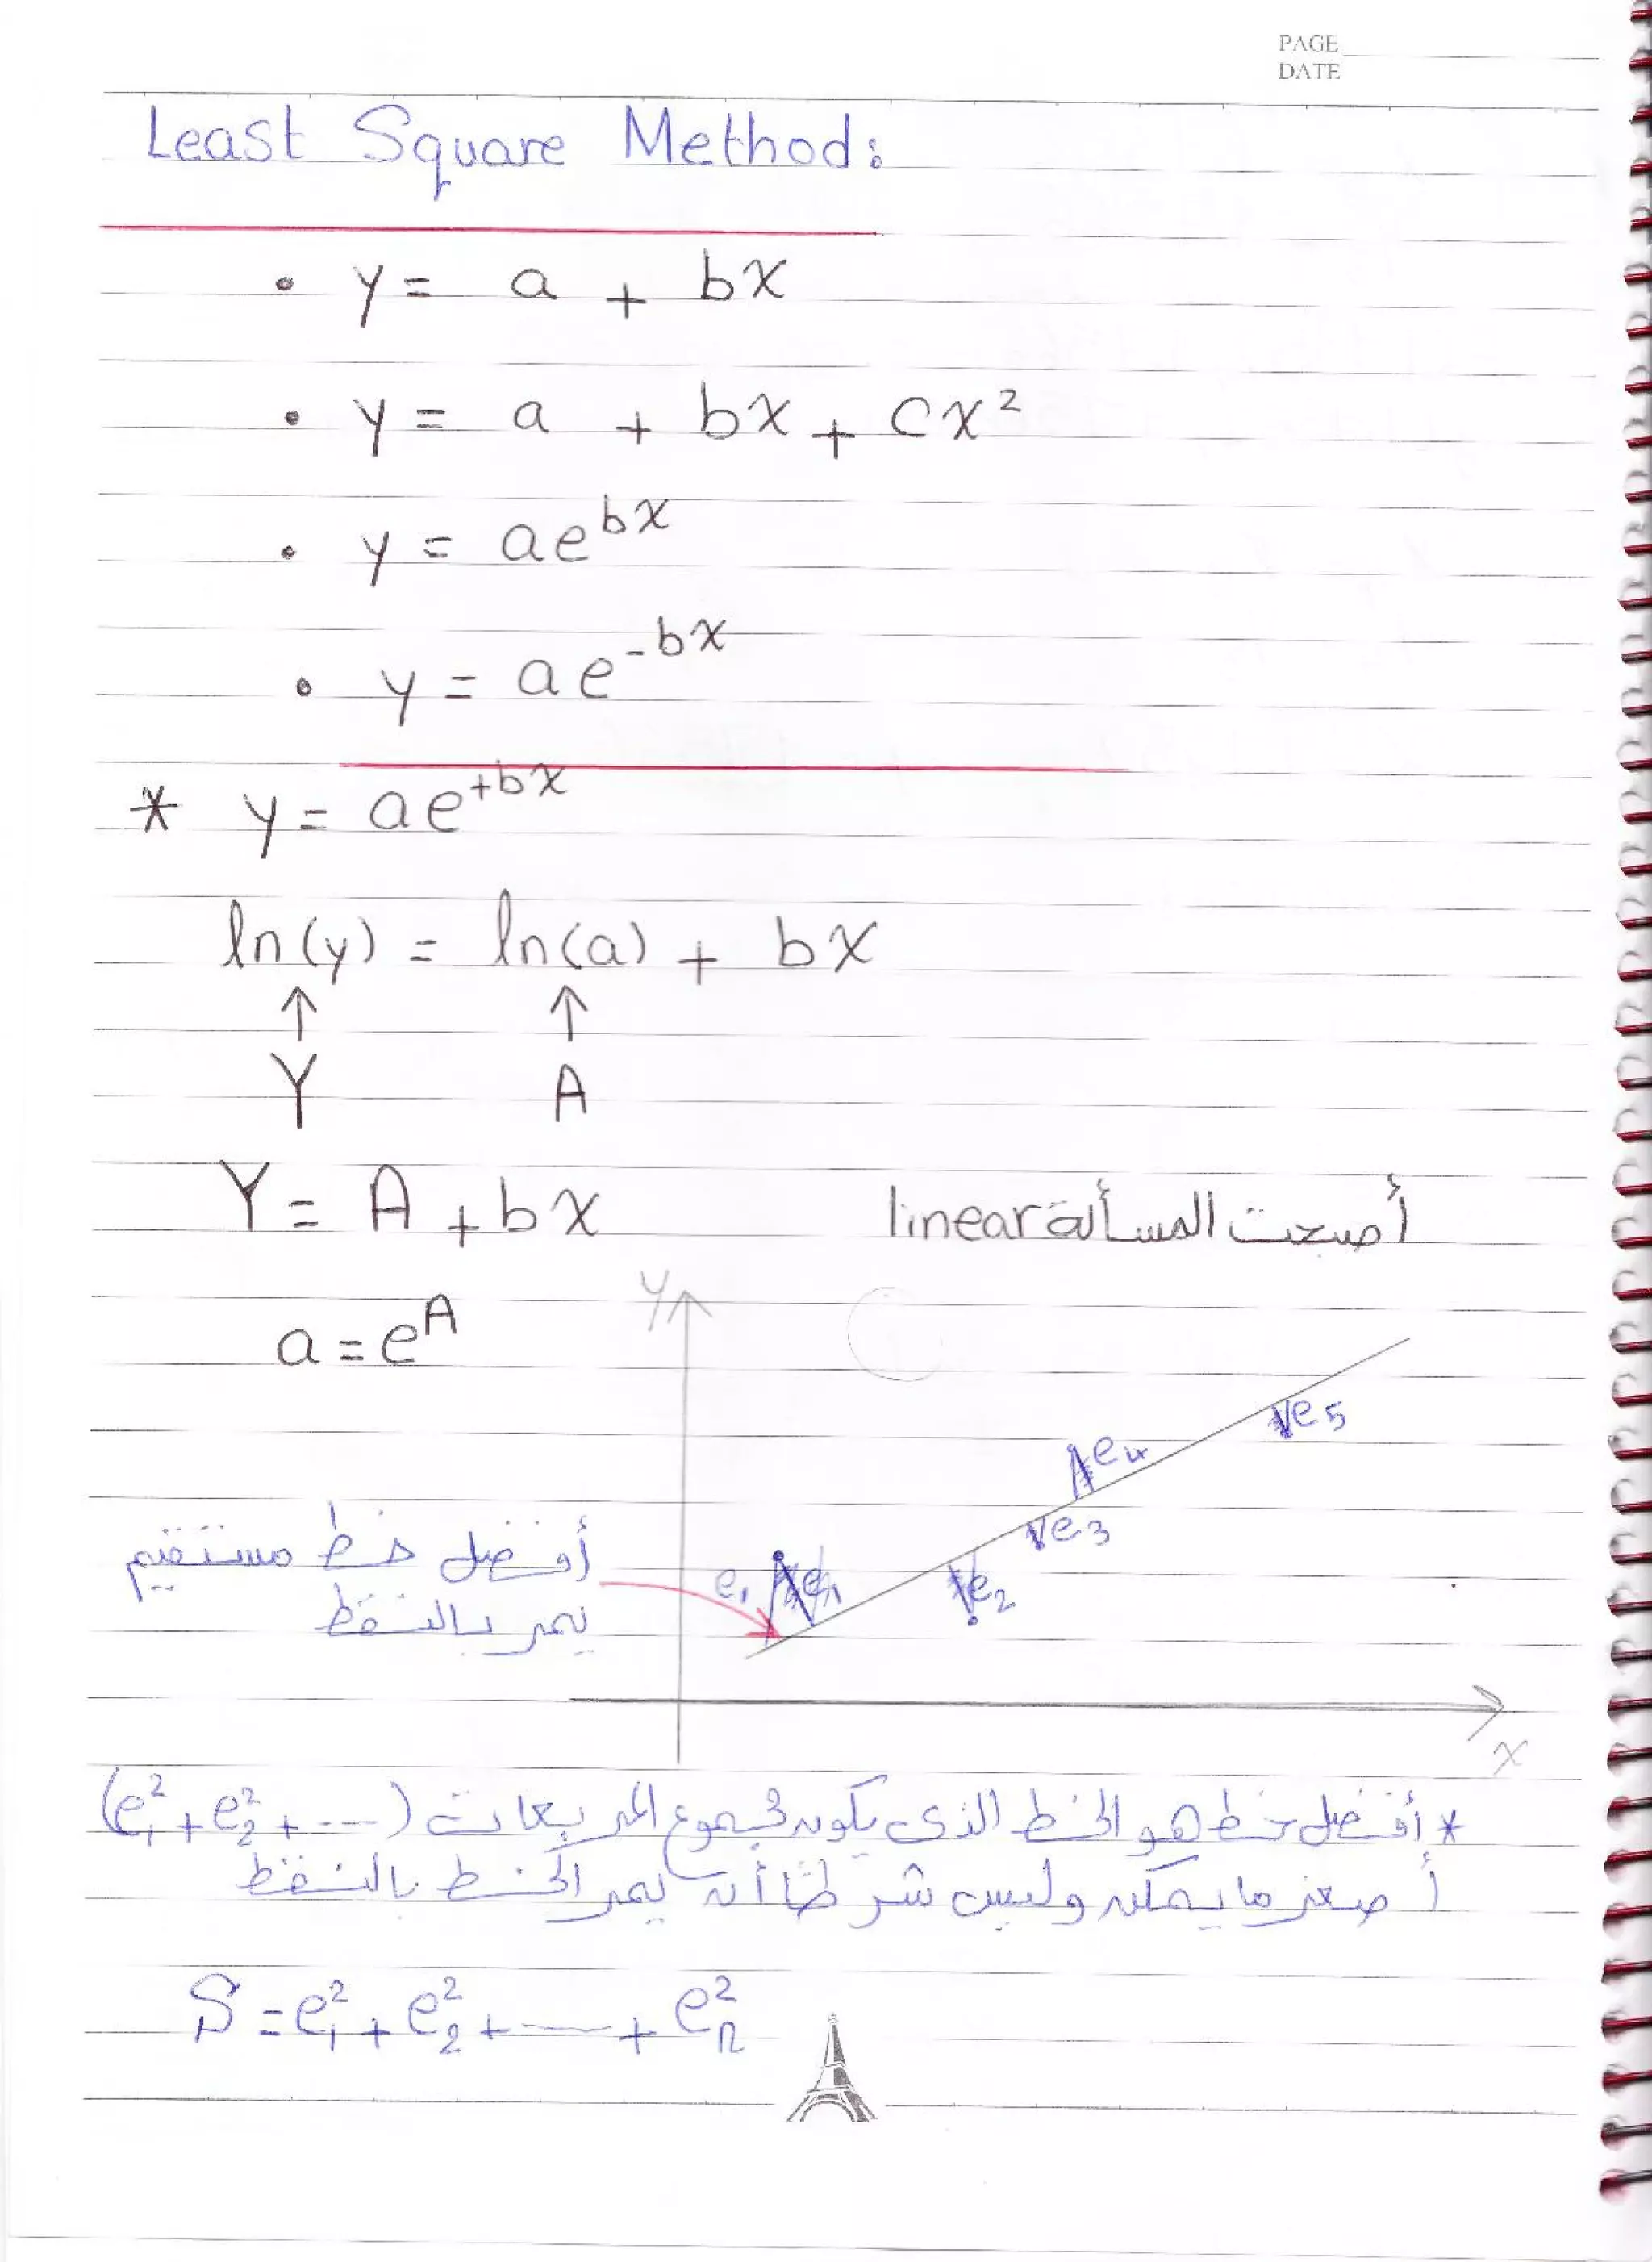 PAGE
DATE
Least Square Method:
• y = a + bx
• y = a + bx + cx²
• y = ae^{bx}
• y = ae^{-bx}
* y = ae^{+bx}
ln(y) = ln(a) + bx
↑ ↑
Y A
Y = A + bx أصبحت المسألة linear
a = e^A
y
e₅
e₄
e₃
e₁ e₂
أفضل خط مستقيم
يمر بالنقط
x
* أفضل خط هو الخط الذى يكون مجموع المربعات (e₁² + e₂² + ---)
أصغر ما يمكن وليس شرطًا أن يمر الخط بالنقط
S = e₁² + e₂² + ---- + eₙ²